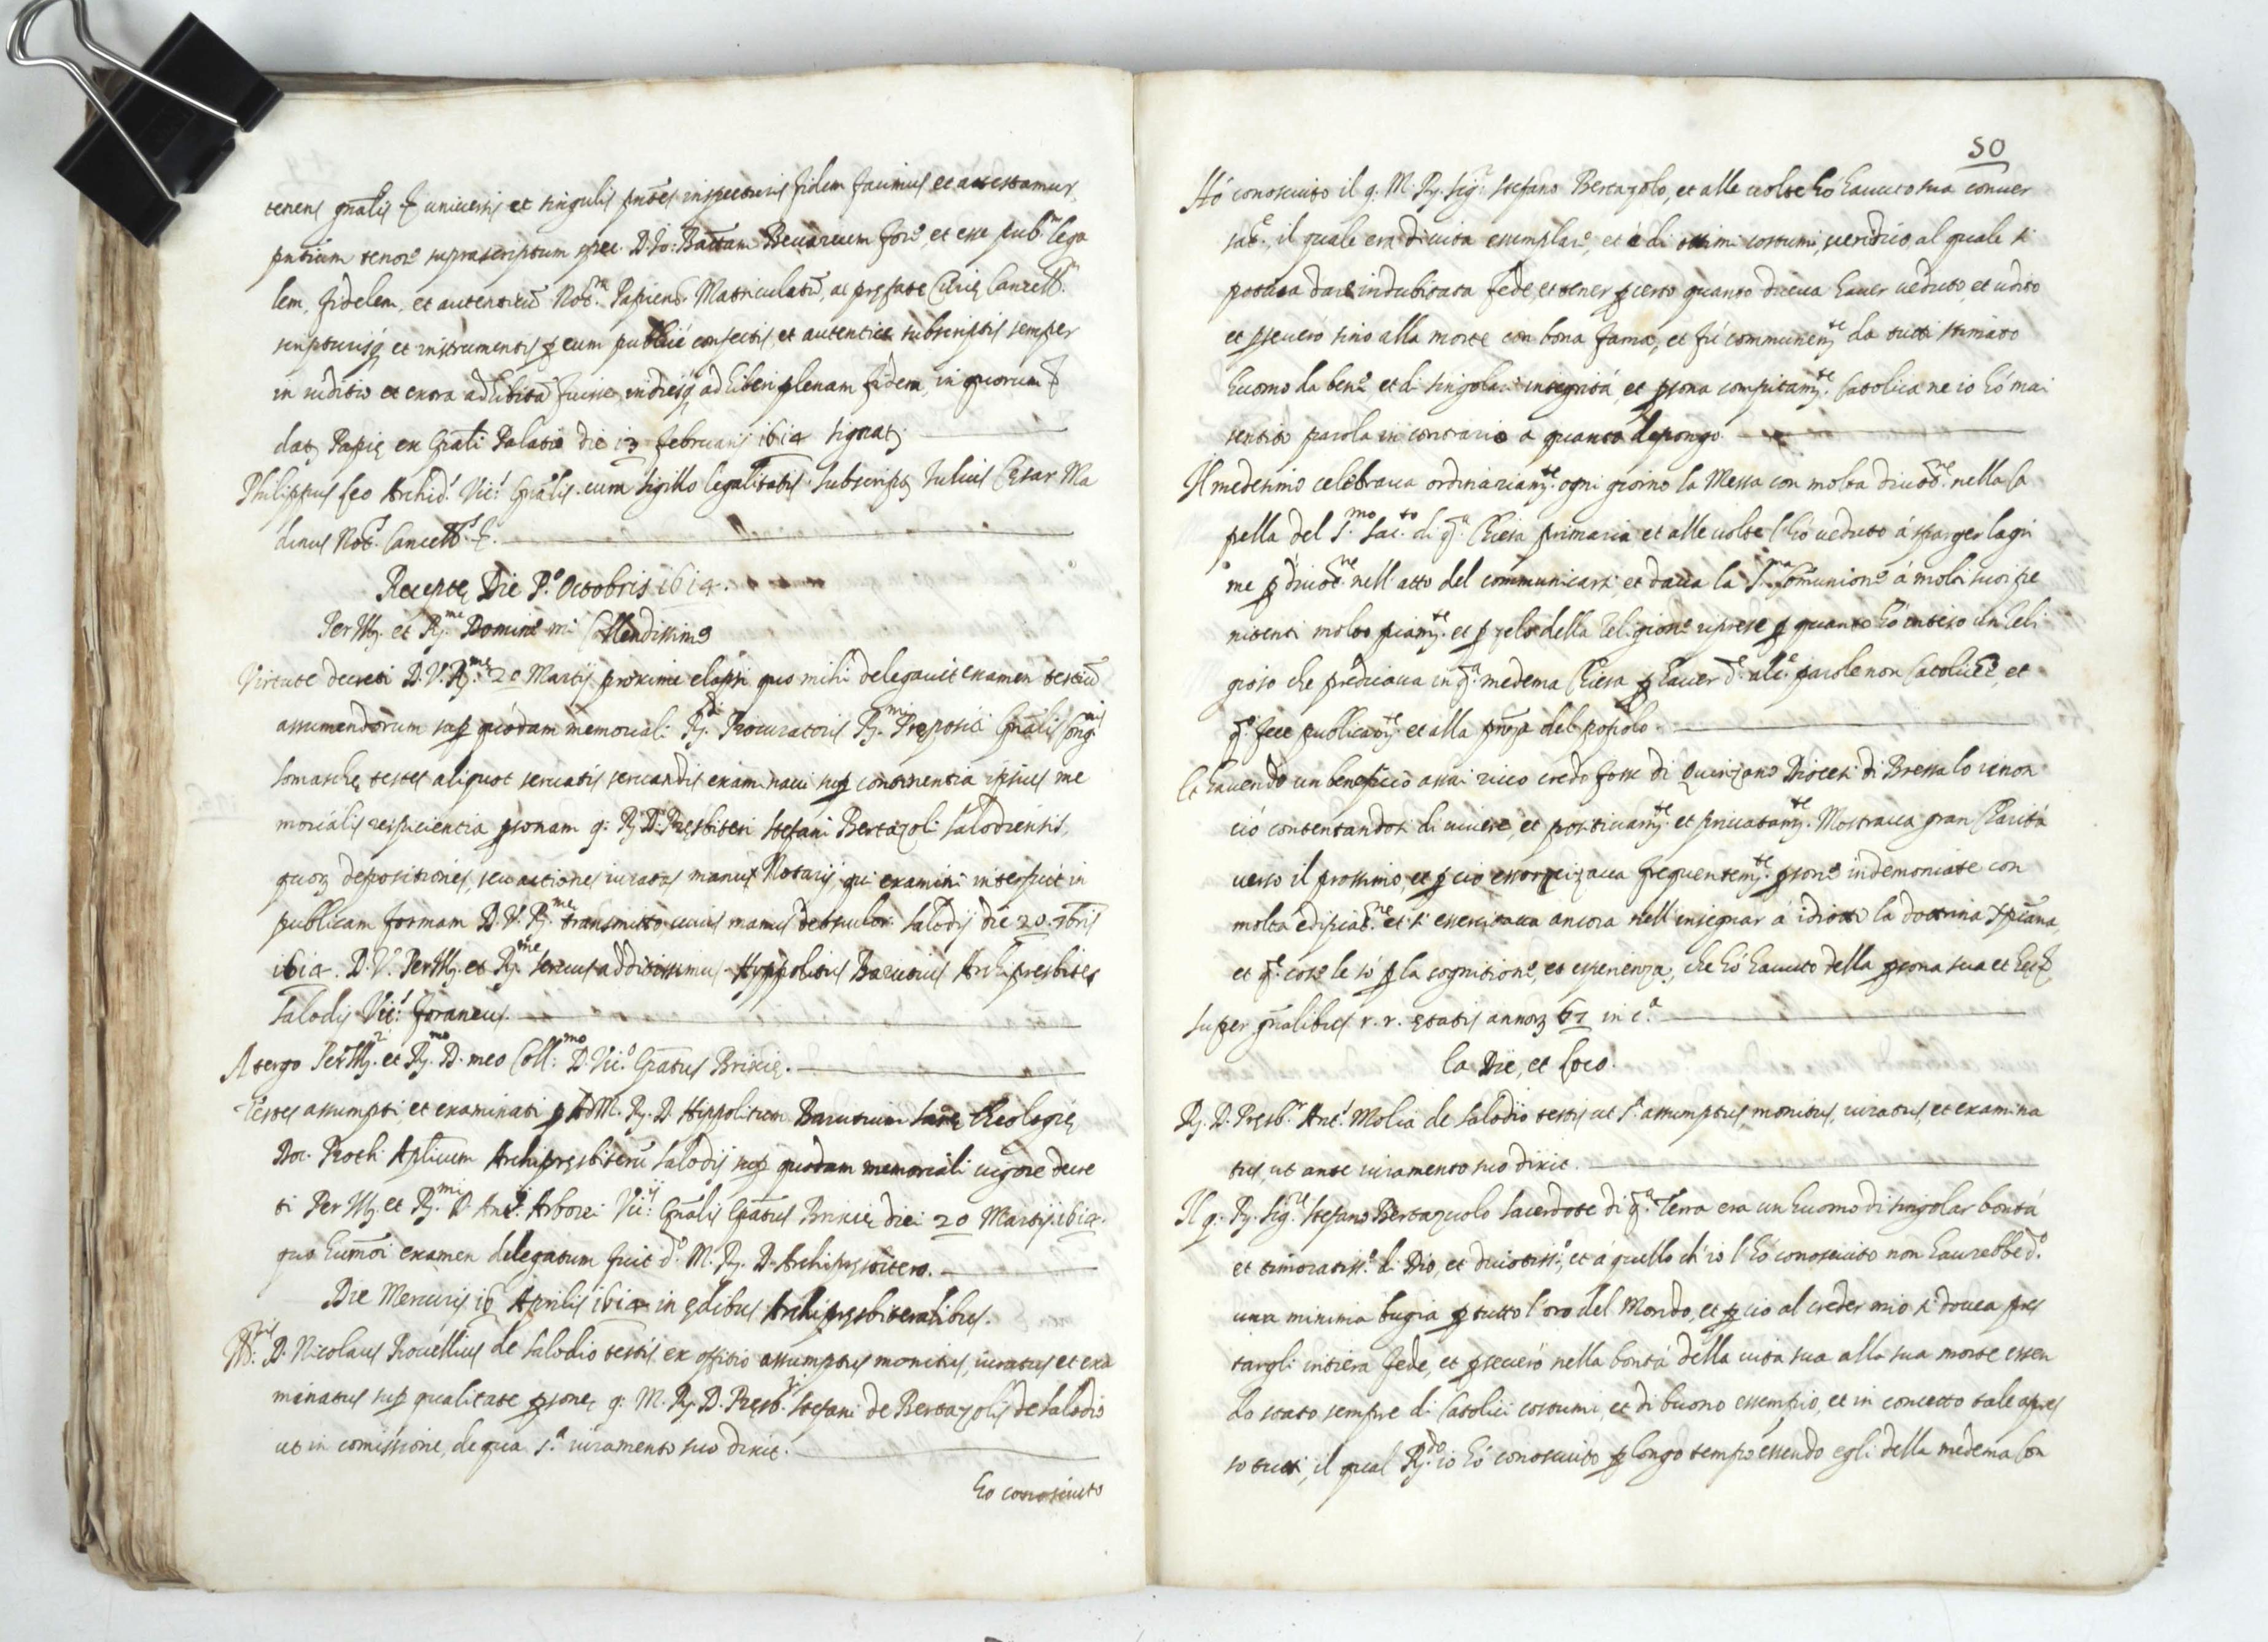 tenens gnãlis &c. universis et singulis pñtes inspecturis fidem facimus et attestamur,
pñtium tenore suprascriptum spec. D. Io: Battam Bevarcum fore, et esse pub.m lega
lem, fidelem, et autenticũ Not.m Papiens. Matriculatũ, ac prefate Curię Cancell.m
scripturisq et instrumentis p eum publicè confectis, et autenticè subscriptis semper
in iuditio et extra adhibitã fuisse, indiesq adhiberi plenam fidem, in quorum &c
dat. Papię ex Epãli Palatio die 13 februarij 1614 signat.
Philippus Leo Archid.s Vic.s Gñalis. cum sigillo legalitatis. subscript. Iulius Cęsar Ma
dinus Not.s Cancell.s &c.
Receptę Die P.o Octobris 1614.
Per Ill. et R.me Domine mi Collendissime
Virtute decreti D. V. R.me 20 Martij proximi elapsi quo mihi delegavit examen testiũ
assumendorum sup quodam memoriali R.di Procuratoris R.mi Prepositi Gñalis Cong.nis
Somaschę testes aliquot servatis servandis examinavi sup continentia ipsius me
morialis respicientia psonam q. R. D. Pręsbiteri Stefani Bertazoli Salodiensis,
quorz depositiones, seu actiones iuratas manu Notarij, qui examini interfuit in
publicam formam D. V. R.me transmitto, cuius manus deosculor. Salodij die 20. 7bris
1614. D. V. Per Ill. et R.me servus addictissimus Hyppolitus Barutius Archipresbiter
Salodij Vic.s foraneus.
A tergo Per Ill.ri et R.mo D. meo Coll.mo D. Vic.o Epãtus Brixię.
Testes assumpti, et examinati p Ad M. R. D. Hippolitum Barutium Sacrę Theologię
Doc. Proth. Aplicum Archipręsbiterũ Salodij sup quodam memoriali vigore decre
ti Per Ill. et R.mi D. Ant.ij Arborei Vic.ij Gñalis Epãtus Brixię diei 20 Martij 1614.
quo huiusmõi examen delegatum fuit d.o M. R. D. Archipręsbitero.
Die Mercurij 16 Aprilis 1614 in ędibus Archipręsbiteralibus.
D. Nicolaus Rovellius de Salodio testis ex offitio assumptus monitus, iuratus et exa
minatus sup qualitate psonę q. M. R. D. Pręsb.ri Stefani de Bertazolis de Salodio
ut in comissione, de qua s.a iuramento suo dixit.
ho conosciuto
50
Hò conosciuto il q. M. R. Sig.r Stefano Bertazolo, et alle volte ho havuto sua conver
sat.e, il quale era di vita esemplare, et è di ottimi costumi, veridico al quale si
poteva dare indubitata fede, et tener p certo quanto diceva haver veduto, et udito
et pseverò sino alla morte con bona fama, et fù communem.te da tutti stimato
huomo da bene et di singolar integrità, et psona compitam.te Catolica ne io hò mai
sentito parola in contrario a quanto depongo.
Il medesimo celebrava ordinariam.te ogni giorno la Messa con molta divot.ne nella Ca
pella del S.mo Sac.to di q.a Chiesa primaria et alle volte l'hò veduto à sparger lagri
me p divot.ne nell'atto del communicarsi, et dava la S.ma Comunione à molti suoi pe
nitenti molto piam.te et p zelo della Religione riprese p quanto hò inteso un Reli
gioso che predicava in q.a medema Chiesa p haver d.e alc.e parole non Catoliche, et
q.o fece publicam.te et alla pñza del popolo.
Et havendo un beneficio assai ricco credo fosse di Quinzano Diocesi di Bressa lo renon
ciò contentandosi di vivere, et positivam.te et privatam.te. Mostrava gran Charità
verso il prossimo, et p ciò essorcizava frequentem.te psone indemoniate con
molta edificat.ne et si essercitava ancora nell'insegnar a idioti la dottrina Xpiana,
et q.e cose le sò p la cognitione, et esperienza, che hò havuto della psona sua et hec &c.
Super gñalibus r. r. ętatis annorz 67 in c.a
Ea Die, et Loco.
R. D. Pręsb.r Ant.s Molia de Salodio testis ut s.a assumptus, monitus, iuratus, et examina
tus, ut ante iuramento suo dixit.
Il q. R. Sig.re Stefano Bertazuolo Sacerdote di q.a Terra era un huomo di singolar bontà
et timoratiss.o di Dio, et divotiss.o, et à quello ch'io l'hò conosciuto non haurebbe d.o
una minima bugia p tutto l'oro del Mondo, et p ciò al creder mio si doveva pres
targli intiera fede, et pseverò nella bontà della vita sua alla sua morte essen
do stato sempre di Catolici costumi, et di buono essempio, et in concetto tale apres
so tutti, il qual R.do io hò conosciuto p longo tempo essendo egli della medema Con